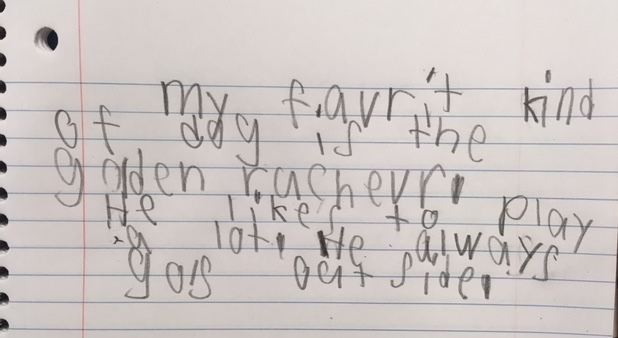 my favrit kind
of dog is the
golden rachevr.
He likes to play
a lot. He always
gois out side.